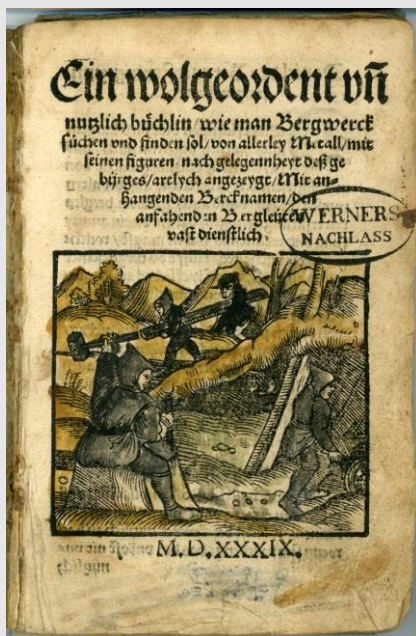 Ein wolgeordent vñ
nutzlich büchlin/wie man Bergwerck
sůchen vnd finden sol/von allerley Metall/mit
seinen figuren/nach gelegennheyt deß ge
birges/artlych angezeygt/Mit an-
hangenden Bercknamen/den
anfahenden Bergleüten
vast dienstlich.
WERNERS
NACHLASS
M. D. XXXIX.